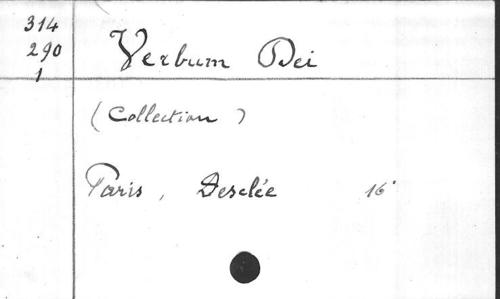 314
290
1
Verbum Dei
(Collection)
Paris, Desclée 16°